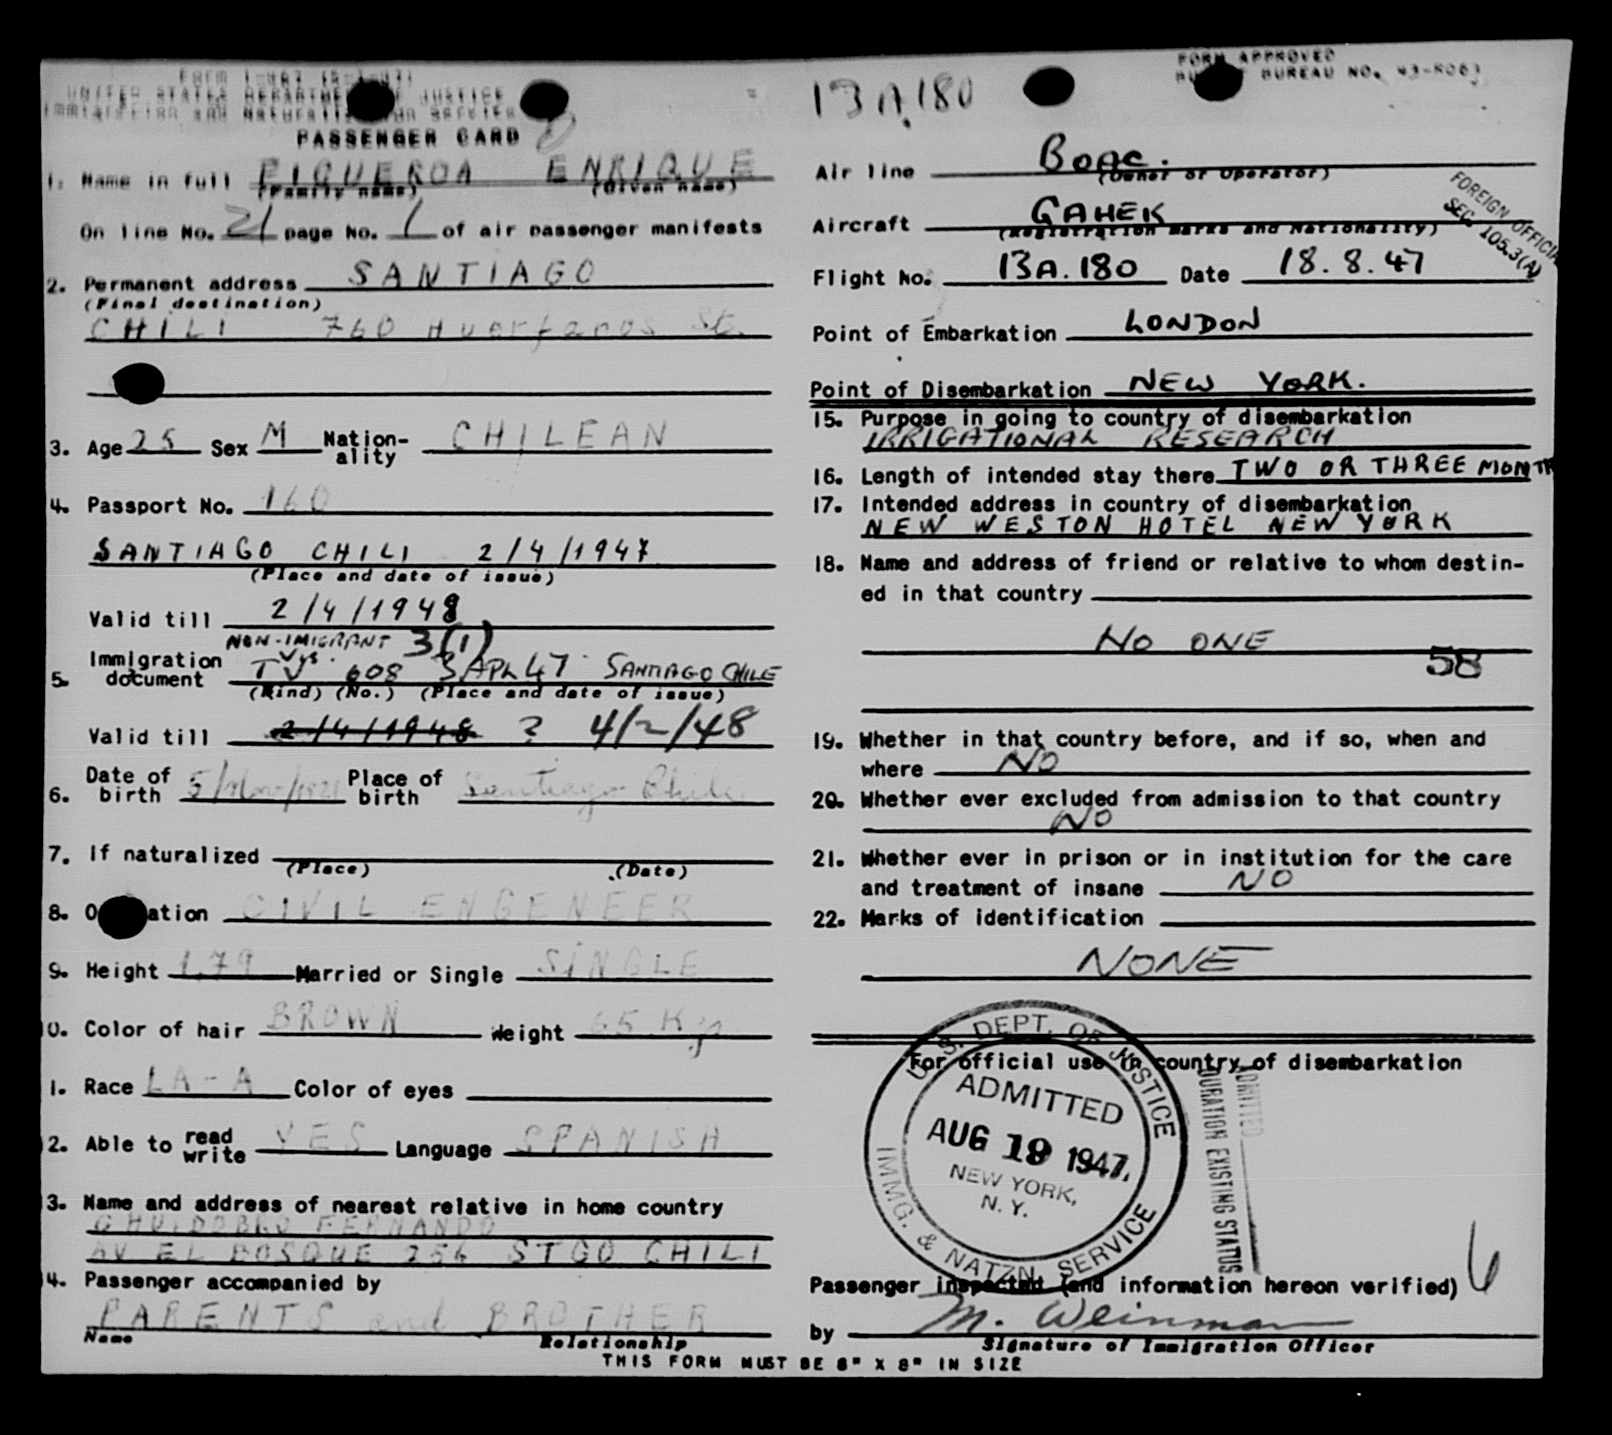 UNITED STATES DEPARTMENT OF JUSTICE
PASSENGER CARD
1. Name in full FIGUEROA ENRIQUE
(Family name) (Given name)
On line No. 21 page No. 1 of air passenger manifests
2. Permanent address SANTIAGO
(Final destination)
CHILI 760 Huerfanos St.
3. Age 25 Sex M Nation-
ality CHILEAN
4. Passport No. 160
SANTIAGO CHILI 2/4/1947
(Place and date of issue)
Valid till 2/4/1948
NON-IMIGRANT 3(1)
5. Immigration
document 608 3 APR 47 SANTIAGO CHILE
(Kind) (No.) (Place and date of issue)
Valid till 2/4/1948 ? 4/2/48
6. Date of
birth Place of
birth Santiago Chile
7. If naturalized
(Place) (Date)
8. O ation CIVIL ENGENEER
9. Height 1.79 Married or Single SINGLE
0. Color of hair BROWN Weight 65 Kg
1. Race LA-A Color of eyes
2. Able to read
write YES Language SPANISH
3. Name and address of nearest relative in home country
FERNANDO
AV EL BOSQUE 256 STGO CHILI
4. Passenger accompanied by
PARENTS and BROTHER
Name Relationship
THIS FORM MUST BE 8" X 8" IN SIZE
FORM APPROVED
BUREAU NO.
13A.180
Air line BOAC.
(Owner or Operator)
Aircraft GAHEK
(Registration marks and Nationality)
FOREIGN OFFICIA
SEC. 105.3(A)
Flight No. 13A.180 Date 18.8.47
Point of Embarkation LONDON
Point of Disembarkation NEW YORK.
15. Purpose in going to country of disembarkation
IRRIGATIONAL RESEARCH
16. Length of intended stay there TWO OR THREE MONTH
17. Intended address in country of disembarkation
NEW WESTON HOTEL NEW YORK
18. Name and address of friend or relative to whom destin-
ed in that country
NO ONE
58
19. Whether in that country before, and if so, when and
where NO
20. Whether ever excluded from admission to that country
NO
21. Whether ever in prison or in institution for the care
and treatment of insane NO
22. Marks of identification
NONE
For official use in country of disembarkation
U.S. DEPT. OF JUSTICE
ADMITTED
AUG 19 1947.
NEW YORK,
N. Y.
IMMG. & NATZN. SERVICE
ADMITTED
DURATION EXISTING STATUS
6
Passenger inspected (and information hereon verified)
by M. Weinman
Signature of Immigration Officer